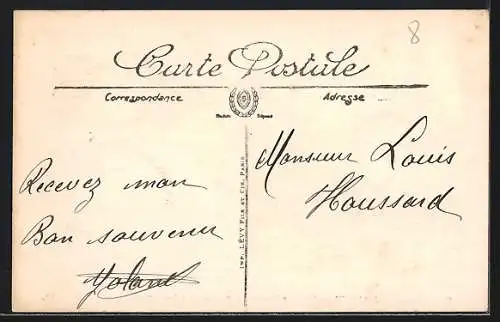 8
Carte Postale
Correspondance
Adresse
Modèle Déposé
Recevez mon
Bon souvenir
IMP. LÉVY FILS ET CIE, PARIS
Monsieur Louis
Houssard